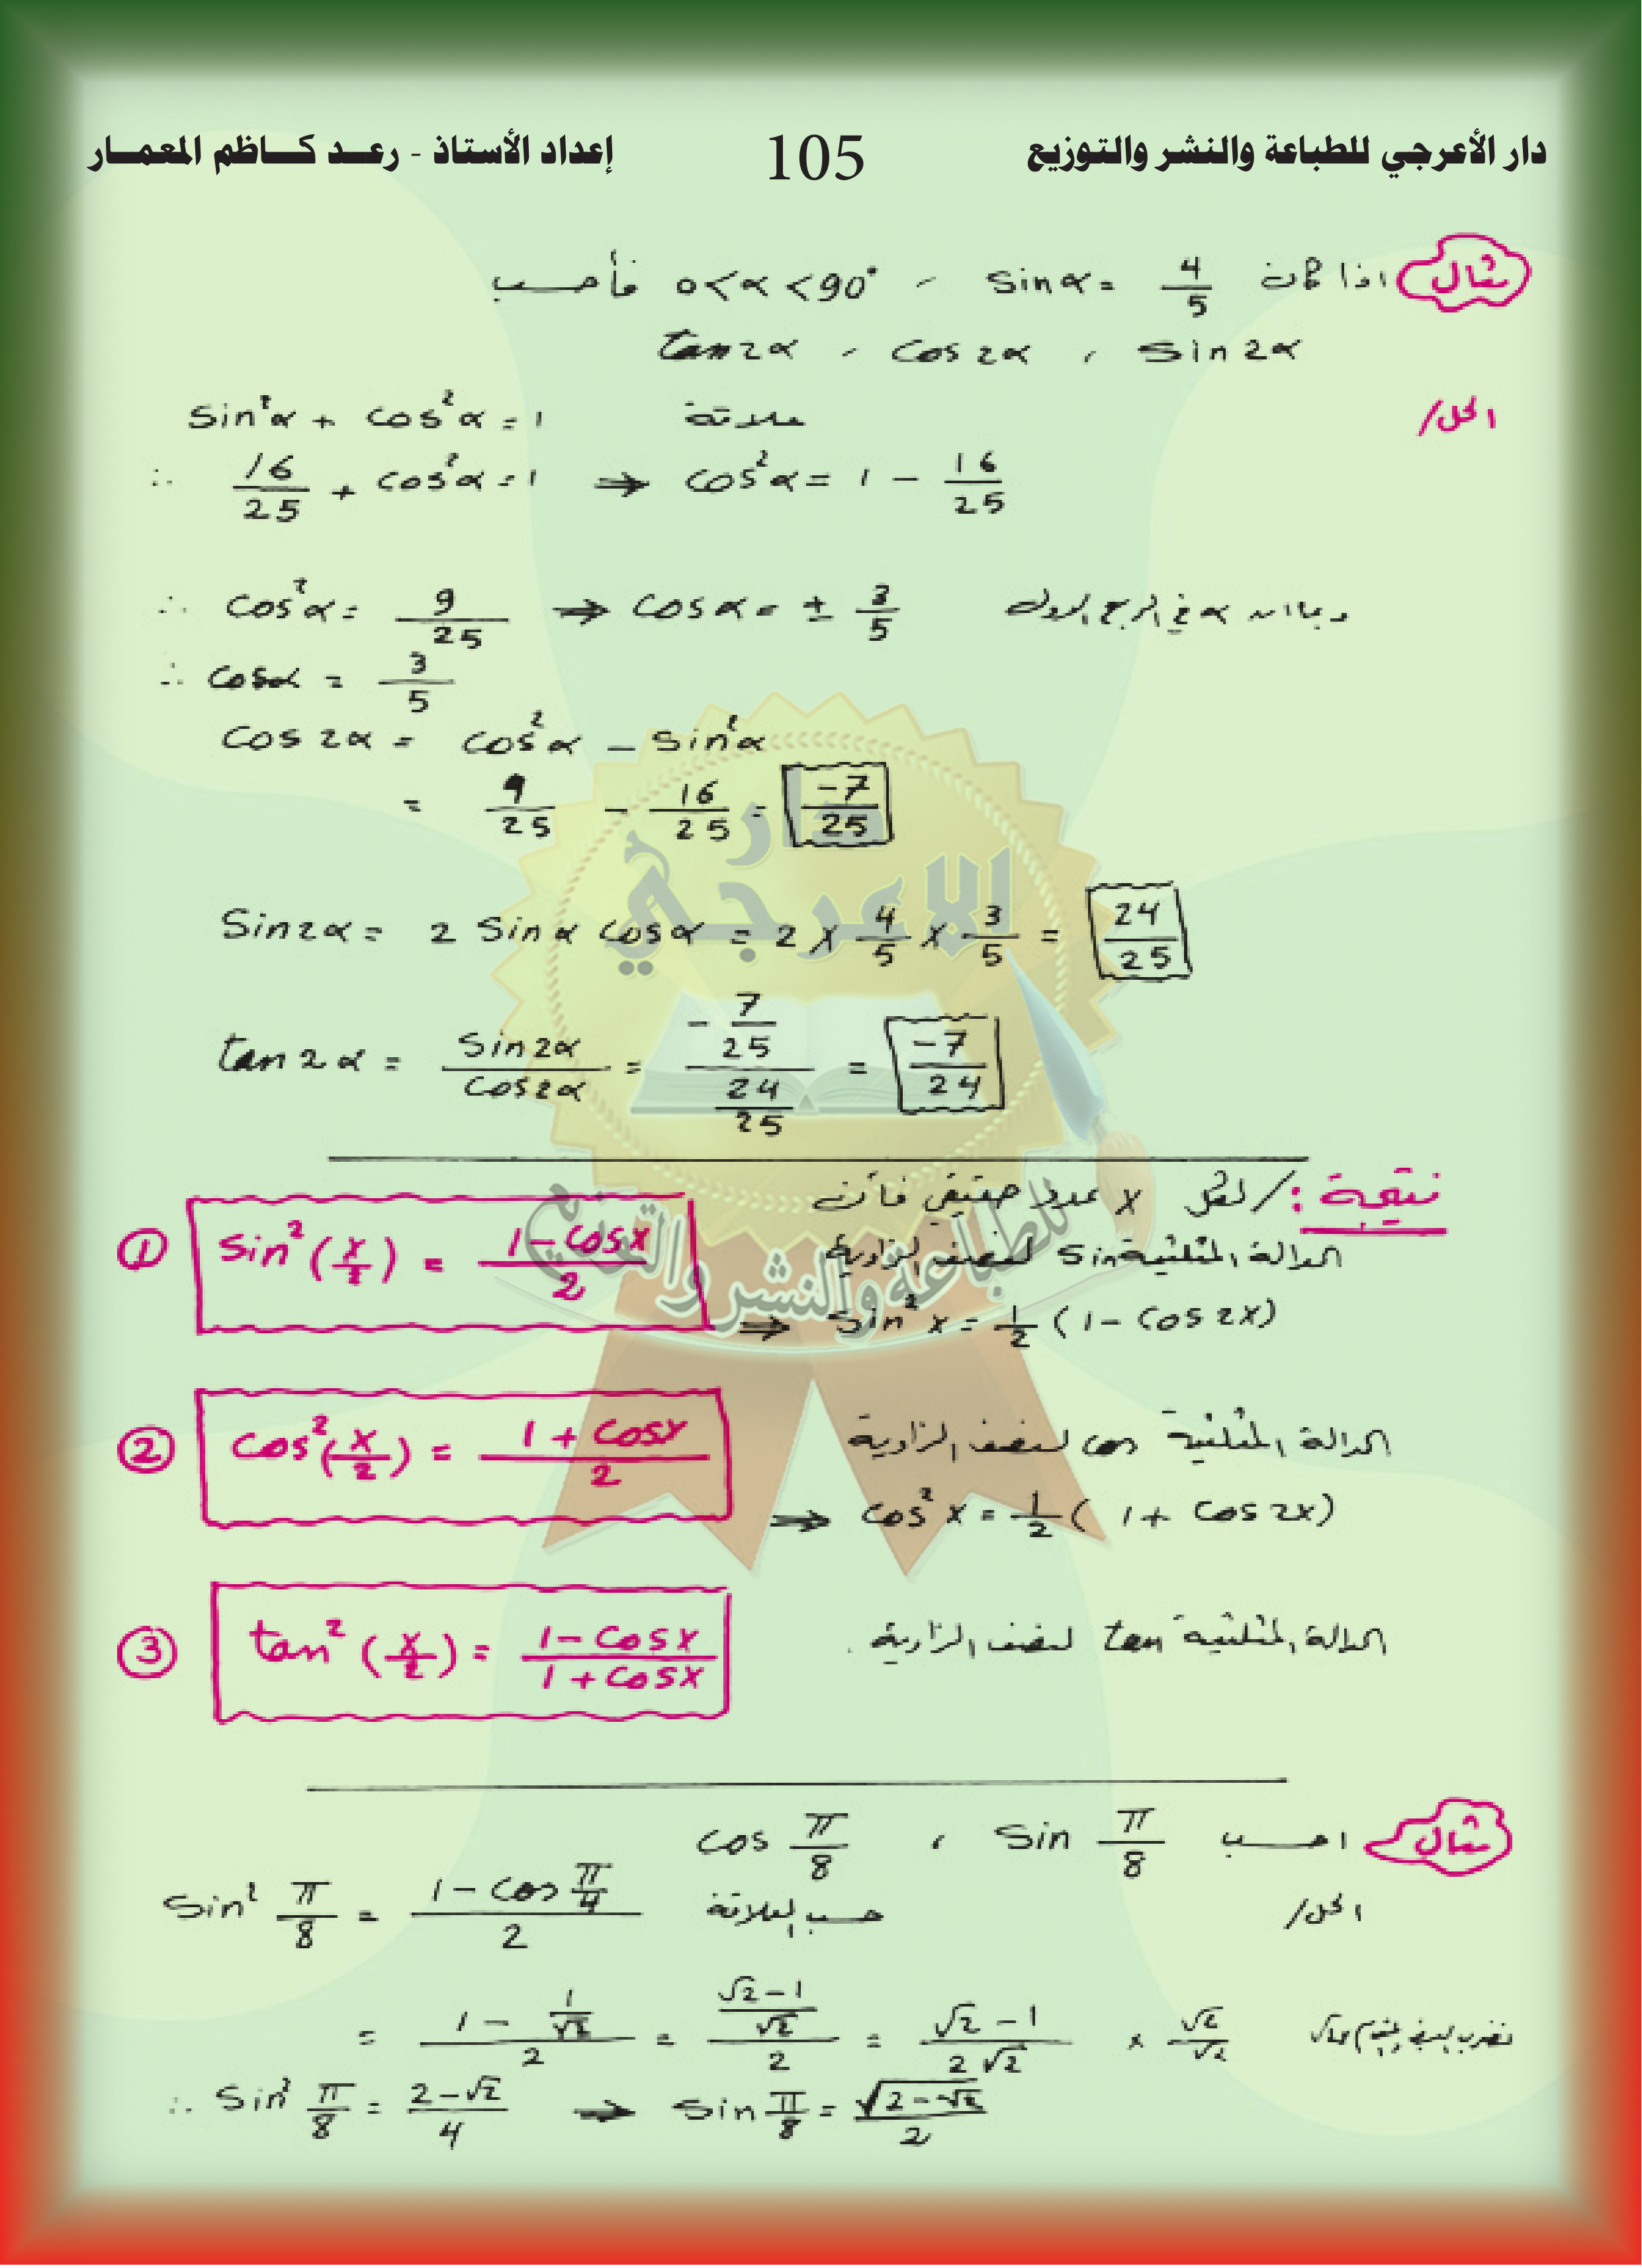 دار الأعرجي للطباعة والنشر والتوزيع 105 إعداد الأستاذ - رعد كاظم المعمار
مثال اذا كان sinα = 4/5 ، 0<α<90° فأحسب
sin2α ، cos2α ، tan2α
الحل/
sin²α + cos²α = 1 علاقة
∴ 16/25 + cos²α = 1 ⇒ cos²α = 1 − 16/25
∴ cos²α = 9/25 ⇒ cosα = ± 3/5 وبما ان α في الربع الاول
∴ cosα = 3/5
cos2α = cos²α − sin²α
= 9/25 − 16/25 = -7/25
sin2α = 2 sinα cosα = 2 × 4/5 × 3/5 = 24/25
tan2α = sin2α/cos2α = (-7/25)/(24/25) = -7/24
دار
الاعرجي
للطباعة والنشر والتوزيع
نتيجة :/ لكل x عدد حقيقي فأن
① sin²(x/2) = (1-cosx)/2 الدالة المثلثية sin لنصف الزاوية
⇒ sin²x = 1/2 (1 - cos2x)
② cos²(x/2) = (1+cosx)/2 الدالة المثلثية cos لنصف الزاوية
⇒ cos²x = 1/2 (1+ cos2x)
③ tan²(x/2) = (1-cosx)/(1+cosx) الدالة المثلثية tan لنصف الزاوية .
مثال احسب sin π/8 ، cos π/8
الحل/
sin² π/8 = (1-cos π/4)/2 حسب العلاقة
= (1 - 1/√2)/2 = ((√2-1)/√2)/2 = (√2-1)/(2√2) × √2/√2 نضرب البسط والمقام √2
∴ sin² π/8 = (2-√2)/4 ⇒ sin π/8 = √(2-√2)/2